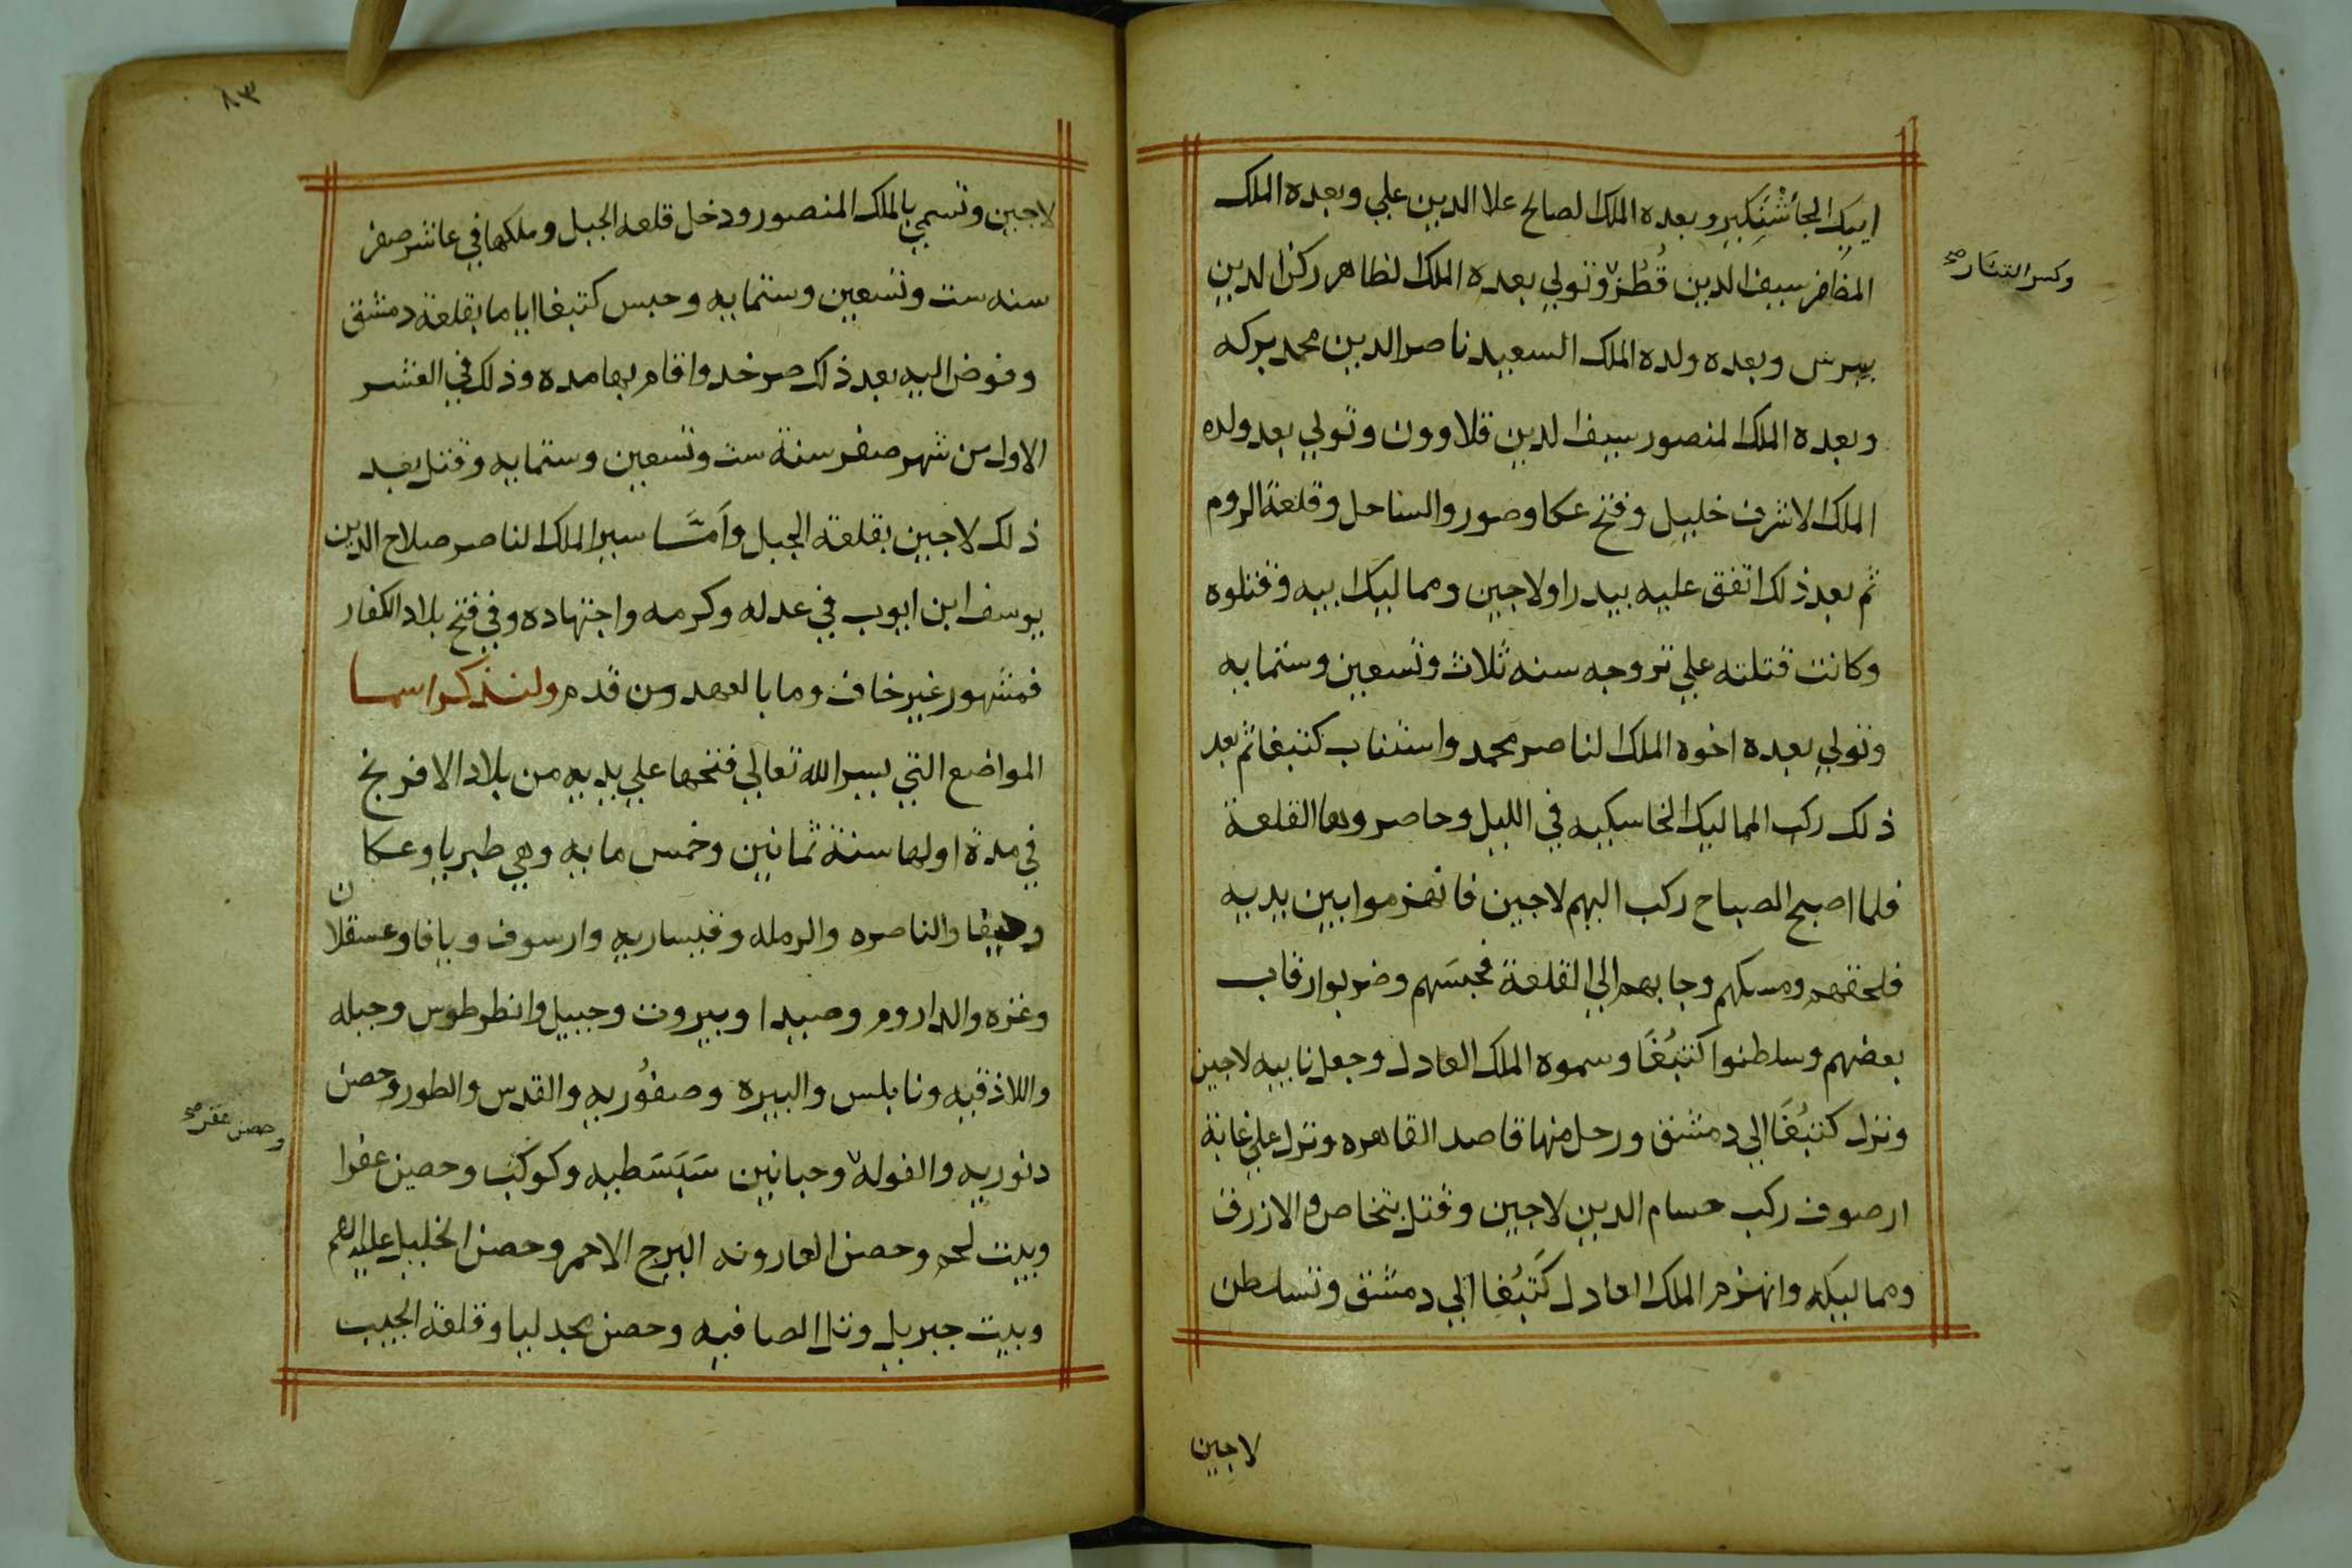 ايبك الجاشنكير وبعده الملك الصالح علا الدين علي وبعده الملك
المظفر سيف الدين قُطُز وتولي بعده الملك الظاهر ركن الدين
وكسر التتار صح
بيبرس وبعده ولده الملك السعيد ناصر الدين محمد بركه
وبعده الملك المنصور سيف الدين قلاوون وتولي بعد ولده
الملك الاشرف خليل وفتح عكا وصور والساحل وقلعة الروم
ثم بعد ذلك اتفق عليه بيدرا ولاجين ومماليك ابيه وقتلوه
وكانت قتلته علي تروجه سنه ثلاث وتسعين وستمايه
وتولي بعده اخوه الملك الناصر محمد واستناب كتبغا ثم بعد
ذلك ركب المماليك الخاسكيه في الليل وحاصروها القلعة
فلما اصبح الصباح ركب اليهم لاجين فانهزموا بين يديه
فلحقهم ومسكهم وجابهم الي القلعة فحبسَهم وضربوا رقاب
بعضهم وسلطنوا كتبُغَا وسموه الملك العادل وجعل نايبه لاجين
ونزل كتبُغَا الي دمشق ورحل منها قاصد القاهره ونزل علي غابة
ارصوف ركب حسام الدين لاجين وقتل بتخاص والازرق
ومماليكه وانهزم الملك العادل كَتبُغا الي دمشق وتسلطن
لاجين
٨٣
لاجين وتسمي بالملك المنصور ودخل قلعه الجبل وملكها في عاشر صفر
سنه ست وتسعين وستمايه وحبس كتبغا اياما بقلعة دمشق
وفوض اليه بعد ذلك صرخد واقام بها مده وذلك في العشر
الاول من شهر صفر سنة ست وتسعين وستمايه وقتل بعد
ذلك لاجين بقلعه الجبل وأمَّا سير الملك الناصر صلاح الدين
يوسف ابن ايوب في عدله وكرمه واجتهاده وفي فتح بلاد الكفار
فمشهور غير خاف وما بالعهد من قدم ولنذكر اسما
المواضع التي يسر الله تعالي فتحها علي يديه من بلاد الافرنج
في مدة اولها سنة ثمانين وخمس مايه وهي طبريا وعكا
وحيفا والناصره والرمله وقيساريه وارسوف ويافا وعسقلان
وغزه والداروم وصيدا وبيروت وجبيل وانطرطوس وجبله
واللاذقيه ونابلس والبيره وصفُّوريه والقدس والطور وحصن
وحصن عفر صح
دنوريه والفوله وحبانين سَبَسَطيه وكوكب وحصين عفرا
وبيت لحم وحصن العارونه البرج الاحمر وحصن الخليل عليه
وبيت جبريل وتل الصافيه وحصن مجدليا وقلعة الجيب